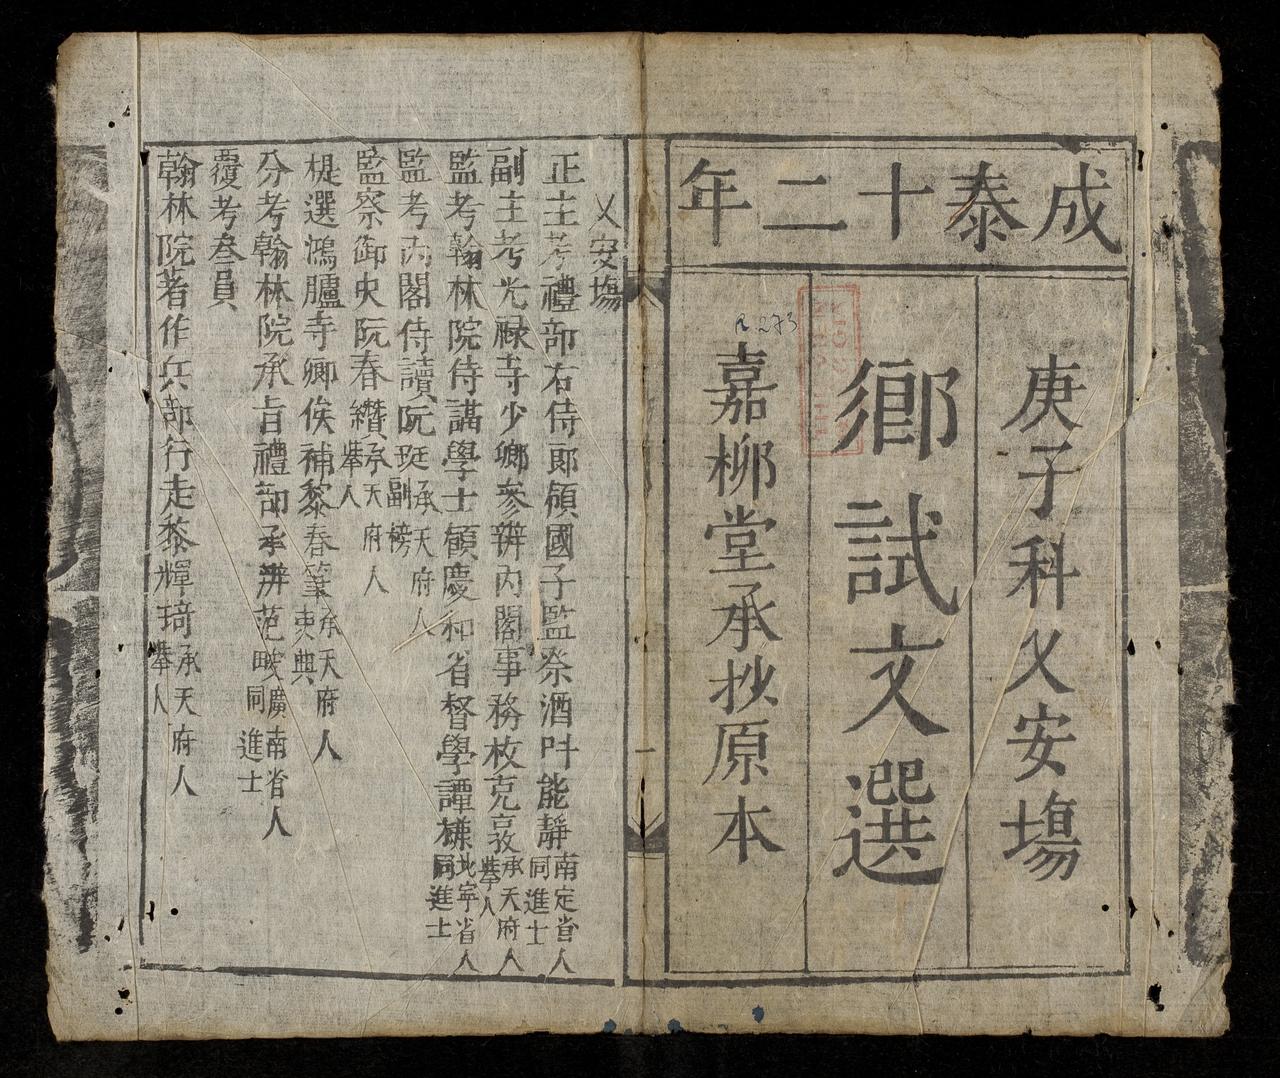 成泰十二年
庚子科乂安場
鄉試文選
嘉柳堂承抄原本
R.273
乂安場
正主考禮部右侍郎領國子監祭酒叶能靜南定省人同進士
副主考光禄寺少卿參辦内閣事務枚克敦承天府人舉人
監考翰林院侍講學士領慶和省督學譚 北寧省人同進士
監考内閣侍讀阮珽承天府人副榜
監察御史阮春纘承天府人舉人
提選鴻臚寺卿候補黎春筆承天府人吏典
分考翰林院承旨禮部承辦范畯廣南省人同進士
覆考叁員
翰林院著作兵部行走黎輝琦承天府人舉人
一